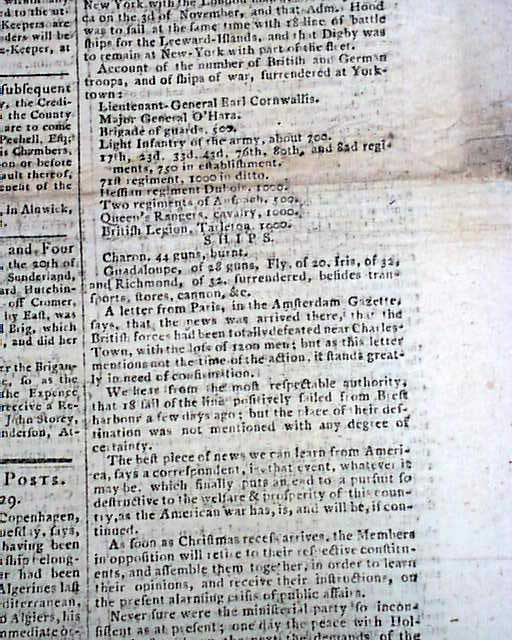 New York with the London
ca on the 3d of November, and that Adm. Hood
was to sail at the same time with 18 line of battle
ships for the Leeward-Islands, and that Digby was
to remain at New-York with part of the fleet.
Account of the number of British and German
troops, and of ships of war, surrendered at York-
town:
Lieutenant-General Earl Cornwallis.
Major General O'Hara.
Brigade of guards, 500.
Light Infantry of the army, about 700.
17th, 23d, 33d, 43d, 76th, 80th, and 82d regi-
ments, 750 in establishment.
71st regiment, 1000 in ditto.
Hessian regiment 1000.
Two regiments of Anspach, 500.
Queen's Rangers, cavalry, 1000.
British Legion, Tarleton, 1000.
SHIPS.
Charon, 44 guns, burnt.
Guadaloupe, of 28 guns, Fly, of 20, Iris, of 32,
and Richmond, of 32, surrendered, besides tran-
sports, stores, cannon, &c.
A letter from Paris, in the Amsterdam Gazette,
says, that the news was arrived there, that the
British forces had been totally defeated near Charles-
Town, with the loss of 1200 men; but as this letter
mentions not the time of the action, it stands great-
ly in need of confirmation.
We hear from the most respectable authority,
that 18 sail of the line positively sailed from Brest
harbour a few days ago; but the place of their des-
tination was not mentioned with any degree of
certainty.
The best piece of news we can learn from Ameri-
ca, says a correspondent, is that event, whatever it
may be, which finally puts an end to a pursuit so
destructive to the welfare & prosperity of this coun-
try, as the American war has, is, and will be, if con-
tinued.
As soon as Christmas recess arrives, the Members
in opposition will retire to their respective constitu-
ents, and assemble them together, in order to learn
their opinions, and receive their instructions, on
the present alarming crisis of public affairs.
Never sure were the ministerial party so incon-
sistent as at present; one day the peace with Hol-
the demands of the
Keepers are
ders will be
-Keeper, at
subsequent
y, the Credi-
the County
are to come
Peshell, Esq;
is Chambers,
on or before
ault thereof,
benefit of the
in Alnwick,
and Four
the 20th of
Sunderland,
ard Hutchin-
off Cromer,
by East, was
d Brig, which
, and did her
er the Brigan-
c, so as the
the Expence
receive a Re-
John Storey,
nderson, At-
POSTS.
29.
Copenhagen,
uesday, says,
having been
ship belong-
er had been
Algerines last
diterranean,
d Algiers, his
immediate or-